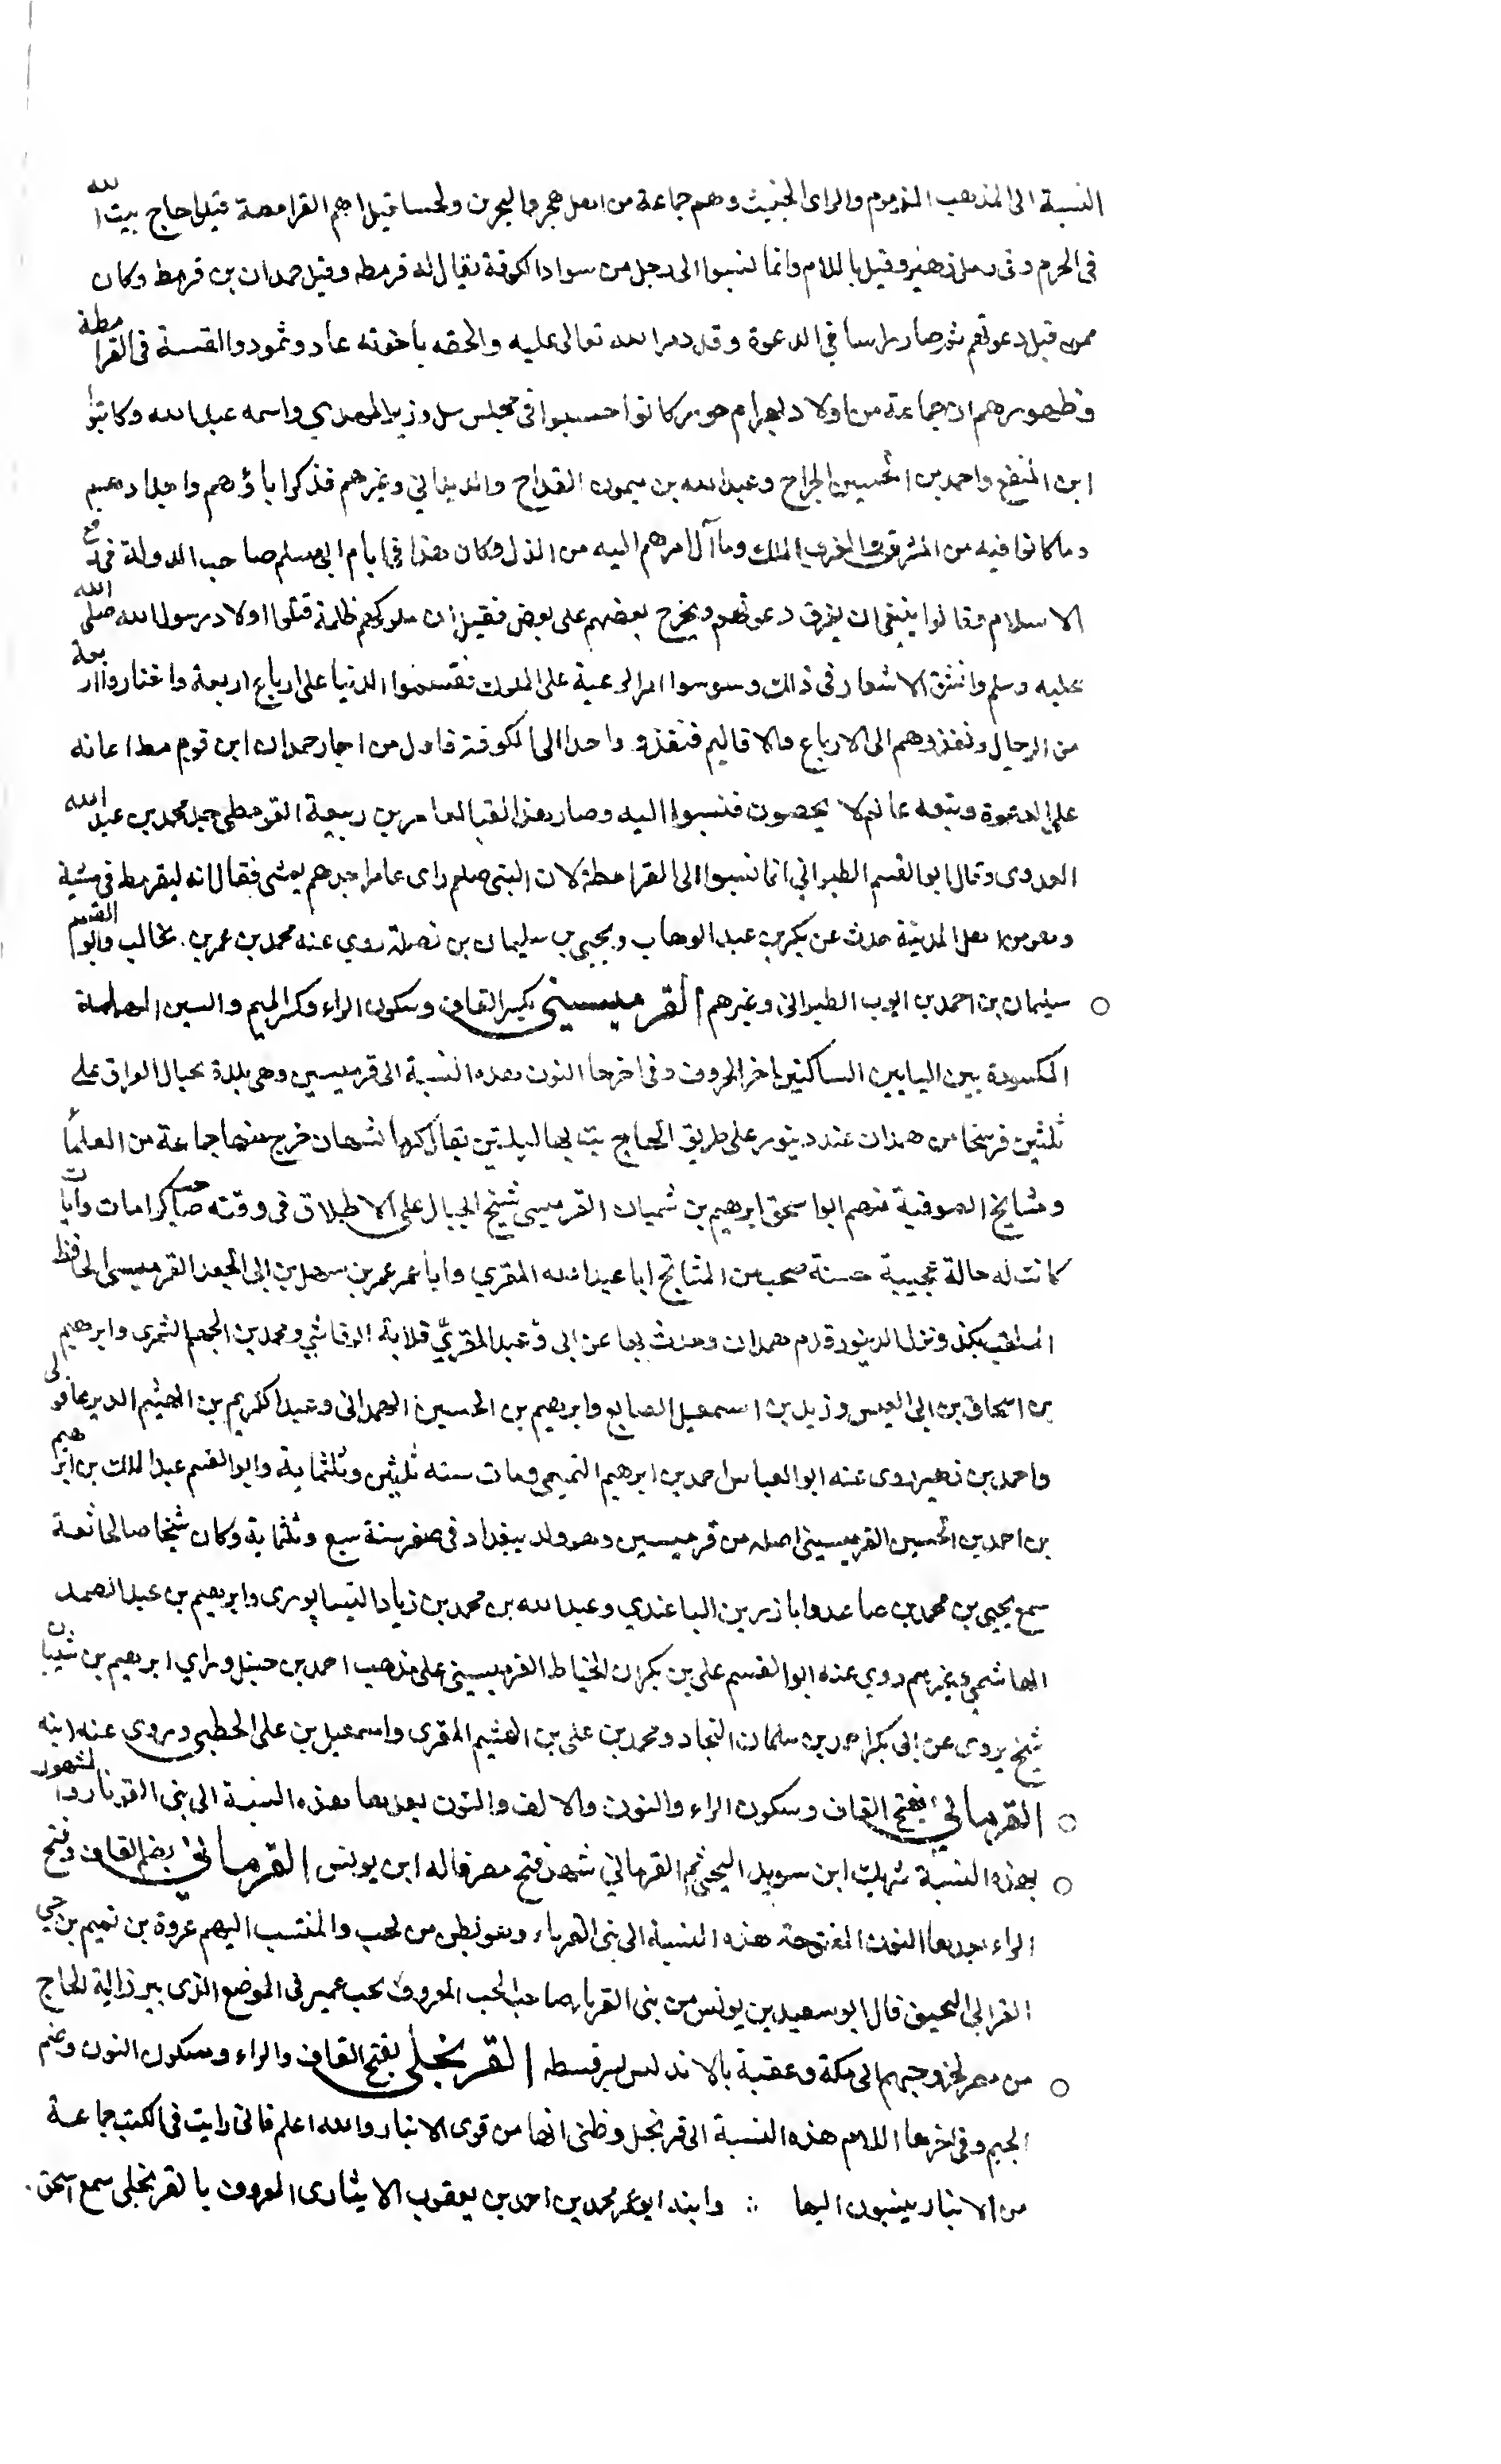 النسبة الى المذهب المذموم والراى الخبيث وهم جماعة من اهل هجر والبحرين ولحسا قيل لهم القرامطة قتلوا حاج بيت الله
فى الحرم وقيل باللام وانما نسبوا الى رجل من سواد الكوفة يقال له قرمطه وقيل حمدان بن قرمط وكان
ممن قبل دعوتهم ثم صار راسا في الدعوة وقد دمر الله تعالى عليه والحقه باخوته عاد وثمود والقصة فى القرامطة
وظهورهم ان جماعة من اولاد بهرام جور كانوا حبسوا فى مجلس وزير المهدي واسمه عبد الله وكاتبوا
ابن المقفع واحمد بن الحسين الجراح وعبد الله بن ميمون القداح وغيرهم فذكرا باؤهم واجدادهم
وما كانوا فيه من الملك وما آل امرهم اليه من الذل وكان هذا في ايام ابى مسلم صاحب الدولة فى
الاسلام وقالوا ينبغى ان يفرق دعوتهم ويخرج بعضهم على بعض فقيل ان ملوككم ظلمة قتلوا اولاد رسول الله صلى الله
عليه وسلم وانشق الاشعار فى ذلك وسوسوا الرعية على الملوك فقسموا الدنيا على ارباع اربعة واختاروا اربعة
من الرجال ونفذوهم الى الارباع والاقاليم فنفذو واحدا الى الكوفة فاول من اجاز حمدان ابن قرمط اعانه
على الدعوة وتبعه عالم لا يحصون فنسبوا اليه وصار هذا لقبا لعامر بن ربيعة القرمطى جد محمد بن عبد الله
العدوى وقال ابو القسم الطبراني انما نسبوا الى القرامطة لان النبى صلعم راى عامرا جدهم يمشى فقال انه ليقرمط فى مشية
وهو من اهل المدينة حدث عن بكر بن عبد الوهاب ويحيى بن سليمان بن نضلة روي عنه محمد بن عمر بن غالب وابو القسم
سليمان بن احمد بن ايوب الطبرانى وغيرهم القرميسينى بكسر القاف وسكون الراء وكسر الميم والسين المهملة
المكسورة بين اليايين الساكنين اخر الحروف وفى اخرها النون هذه النسبة الى قرميسين وهى بلدة بجبال العراق على
ثلثين فرسخا من همدان عند دينور على طريق الحاج بت بها ليلتين يقال لها كرمانشهان خرج منها جماعة من العلما
ومشايخ الصوفية منهم ابو اسحق ابرهيم بن شيبان القرميسى شيخ الجبال على الاطلاق فى وقته صاحب كرامات وايات
كانت له حالة عجيبة حسنة صحب من المشايخ ابا عبد الله المقرى وابا عمر عمر بن سهل بن ابى الجعد القرميسى الحافظ
الملقب بكند ونزل الدينور قدم همدان وحدث بها عن ابى قلابة الرقاشي ومحمد بن الجهم السمرى وابرهيم
بن اسحاق بن ابى العنبس وزيد بن اسمعيل الصايغ وابرهيم بن الحسين الهمدانى وعبد الكريم بن الهيثم الديرعاقولى
واحمد بن زهير روى عنه ابو العباس احمد بن ابرهيم التميمى ومات سنه ثلثين وثلثماية وابو القسم عبد الملك بن ابرهيم
بن احمد بن الحسين القرميسينى اصله من قرميسين وهو ولد ببغداد فى صفر سنة سبع وثلثماية وكان شيخا صالحا ثقة
سمع يحيى بن محمد بن صاعد وابا ذر بن الباغندي وعبد الله بن محمد بن زياد النيسابورى وابرهيم بن عبد الصمد
الهاشمى وغيرهم روي عنه ابو القسم على بن بكران الخياط القرميسينى على مذهب احمد بن حنبل وراي ابرهيم بن شيبان
شيخ يروى عن ابى بكر احمد بن سلمان النجاد ومحمد بن على بن الهثيم المقرى واسمعيل بن على الخطبى وروى عنه ابنه
القرمانى بفتح القاف وسكون الراء والنون والالف والنون بعدها هذه النسبة الى بنى والمشهور
بهذه النسبة ابن سويد القرمانى شهد فتح مصر قاله ابن يونس القرمانى بضم القاف وفتح
الراء بعدها النون المفتوحة هذه النسبة الى بنى القرناء وهو بطن من لخب والمنتسب اليهم عروة بن تميم بن حي
القرابى قال ابو سعيد بن يونس من بنى القرنا صاحب الجب المعروف بجب عمير فى الموضع الذى يبرز اليه الحاج
من مصر لخروجهم الى مكة وعقبة بالاندلس بسرقسطه القرنجلى بفتح القاف والراء وسكون النون وضم
الجيم وفى اخرها اللام هذه النسبة الى قرنجل وظنى انها من قرى الانبار والله اعلم فانى رايت فى الكتب جماعة
من الانبار ينسبون اليها ∴ وابنه ابو عمر محمد بن احمد بن يعقوب المعروف بالقرنجلى سمع اسحق